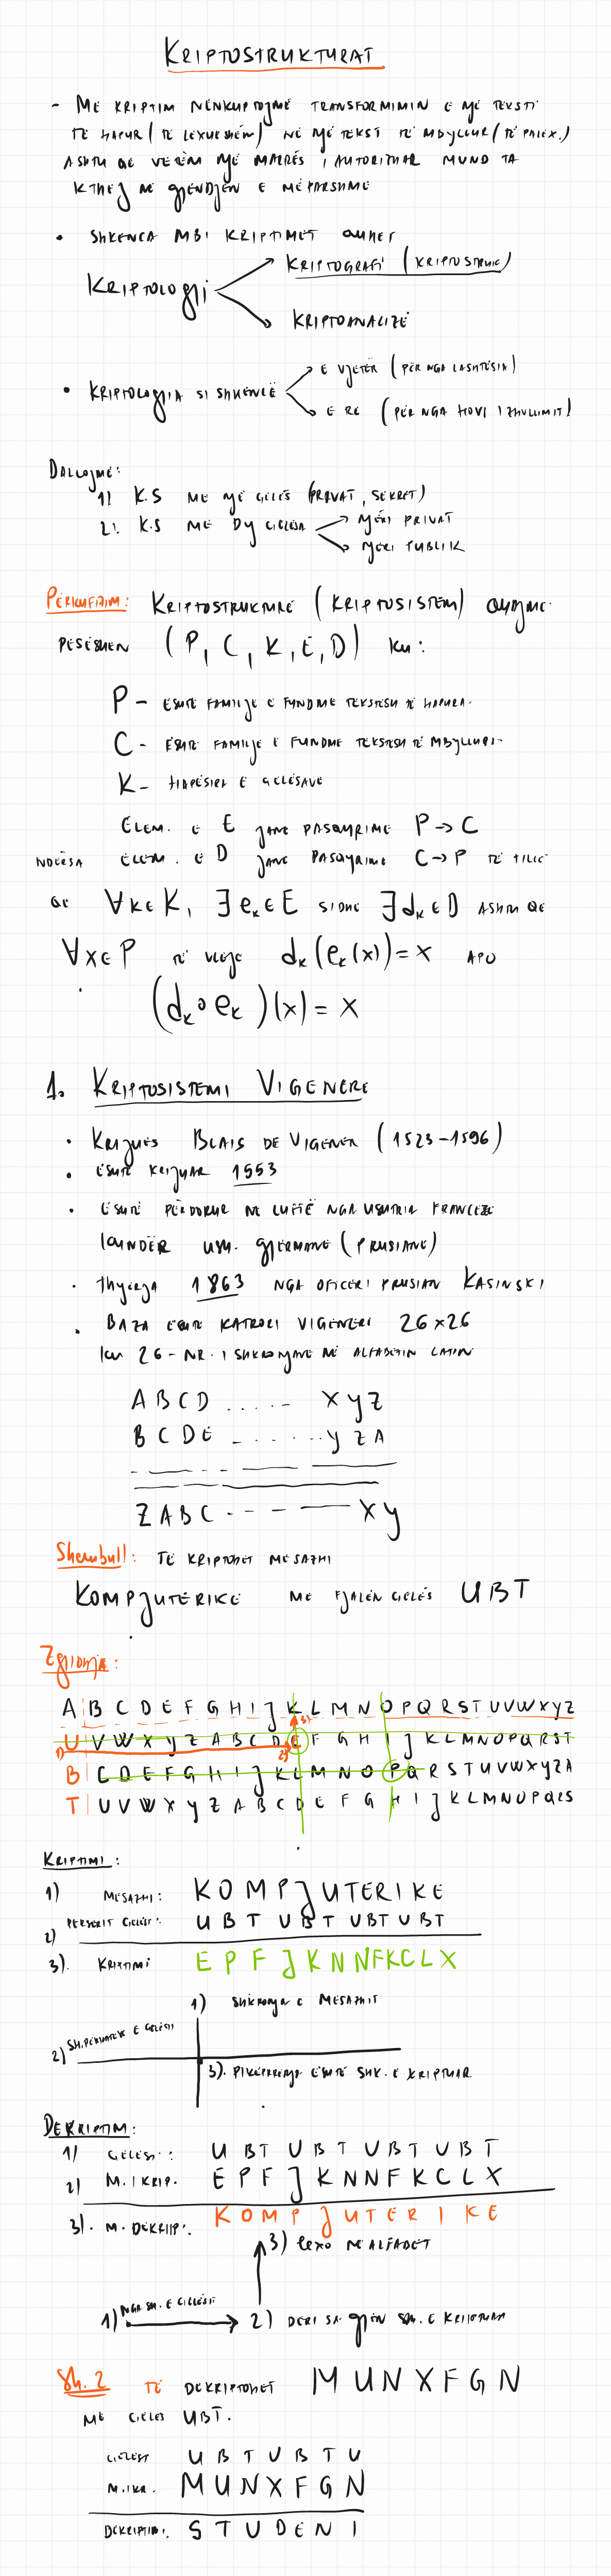 KRIPTOSTRUKTURAT
- ME KRIPTIM NËNKUPTOJMË TRANSFORMIMIN E NJË TEKSTI
TË HAPUR (TË LEXUESHËM) NË NJË TEKST TË MBYLLUR (TË PALEX.)
ASHTU QË VETËM NJË MARRËS I AUTORIZUAR MUND TA
KTHEJ NË GJENDJEN E MËPARSHME
• SHKENCA MBI KRIPTIMET QUHET
KRIPTOLOGJI
KRIPTOGRAFI (KRIPTOSTRUK)
KRIPTOANALIZË
• KRIPTOLOGJIA SI SHKENCË
E VJETËR (PËR NGA LASHTËSIA)
E RE (PËR NGA HOVI I ZHVILLIMIT)
DALLOJMË:
1! K.S ME NJË ÇELËS (PRIVAT, SEKRET)
2! K.S ME DY ÇELËSA
NJËRI PRIVAT
NJËRI PUBLIK
PËRKUFIZIM: KRIPTOSTRUKTURË (KRIPTOSISTEM) QUAJMË
PESËSHEN (P, C, K, E, D) KU:
P - ËSHTË FAMILJE E FUNDME TEKSTESH TË HAPURA.
C - ËSHTË FAMILJE E FUNDME TEKSTESH TË MBYLLURA.
K - HAPËSIRA E ÇELËSAVE
ELEM. E E JANË PASQYRIME P → C
NDËRSA ELEM. E D JANË PASQYRIME C → P TË TILLË
QË ∀k∈K, ∃ek∈E SIDHE ∃dk∈D ASHTU QË
∀x∈P TË VLEJË dk(ek(x)) = x APO
(dk∘ek)(x) = x
1. KRIPTOSISTEMI VIGENERE
• KRIJUES BLAIS DE VIGENER (1523-1596)
• ËSHTË KRIJUAR 1553
• ËSHTË PËRDORUR NË LUFTË NGA USHTRIA FRANCEZE
KUNDËR USH. GJERMANE (PRUSIANE)
• THYERJA 1863 NGA OFICERI PRUSIAN KASINSKI
• BAZA ËSHTË KATRORI VIGENERI 26×26
KU 26 - NR. I SHKRONJAVE NË ALFABETIN LATIN
A B C D ...... X Y Z
B C D E ...... Y Z A
Z A B C - - - — X Y
Shembull: TË KRIPTOHET MESAZHI
KOMPJUTERIKE ME FJALËN ÇELËS UBT
Zgjidhja:
A B C D E F G H I J K L M N O P Q R S T U V W X Y Z
U V W X Y Z A B C D E F G H I J K L M N O P Q R S T
B C D E F G H I J K L M N O P Q R S T U V W X Y Z A
T U V W X Y Z A B C D E F G H I J K L M N O P Q R S
KRIPTIMI:
1) MESAZHI: KOMPJUTERIKE
2) PERSERIT ÇELËSI: UBT UBT UBT UBT
3). KRIPTIMI EPFJKNNFKCLX
1) SHKRONJA E MESAZHIT
2) SH. PËRKATËSE E ÇELËSIT
3). PIKËPRERJA ËSHTË SHK. E KRIPTUAR
DEKRIPTIM:
1) ÇELËSI: U BT U B T U B T U B T
2) M. I KRIP. E P F J K N N F K C L X
3). M. DEKRIP: K O M P J U T E R I K E
3) LEXO NË ALFABET
1) NGA SH. E ÇELËSIT
2) DERI SA GJEN SH. E KRIPTUAR
Sh. 2 TË DEKRIPTOHET M U N X F G N
ME ÇELËS UBT.
ÇELËSI U B T U B T U
M. I KR. M U N X F G N
DEKRIPTIM: S T U D E N T